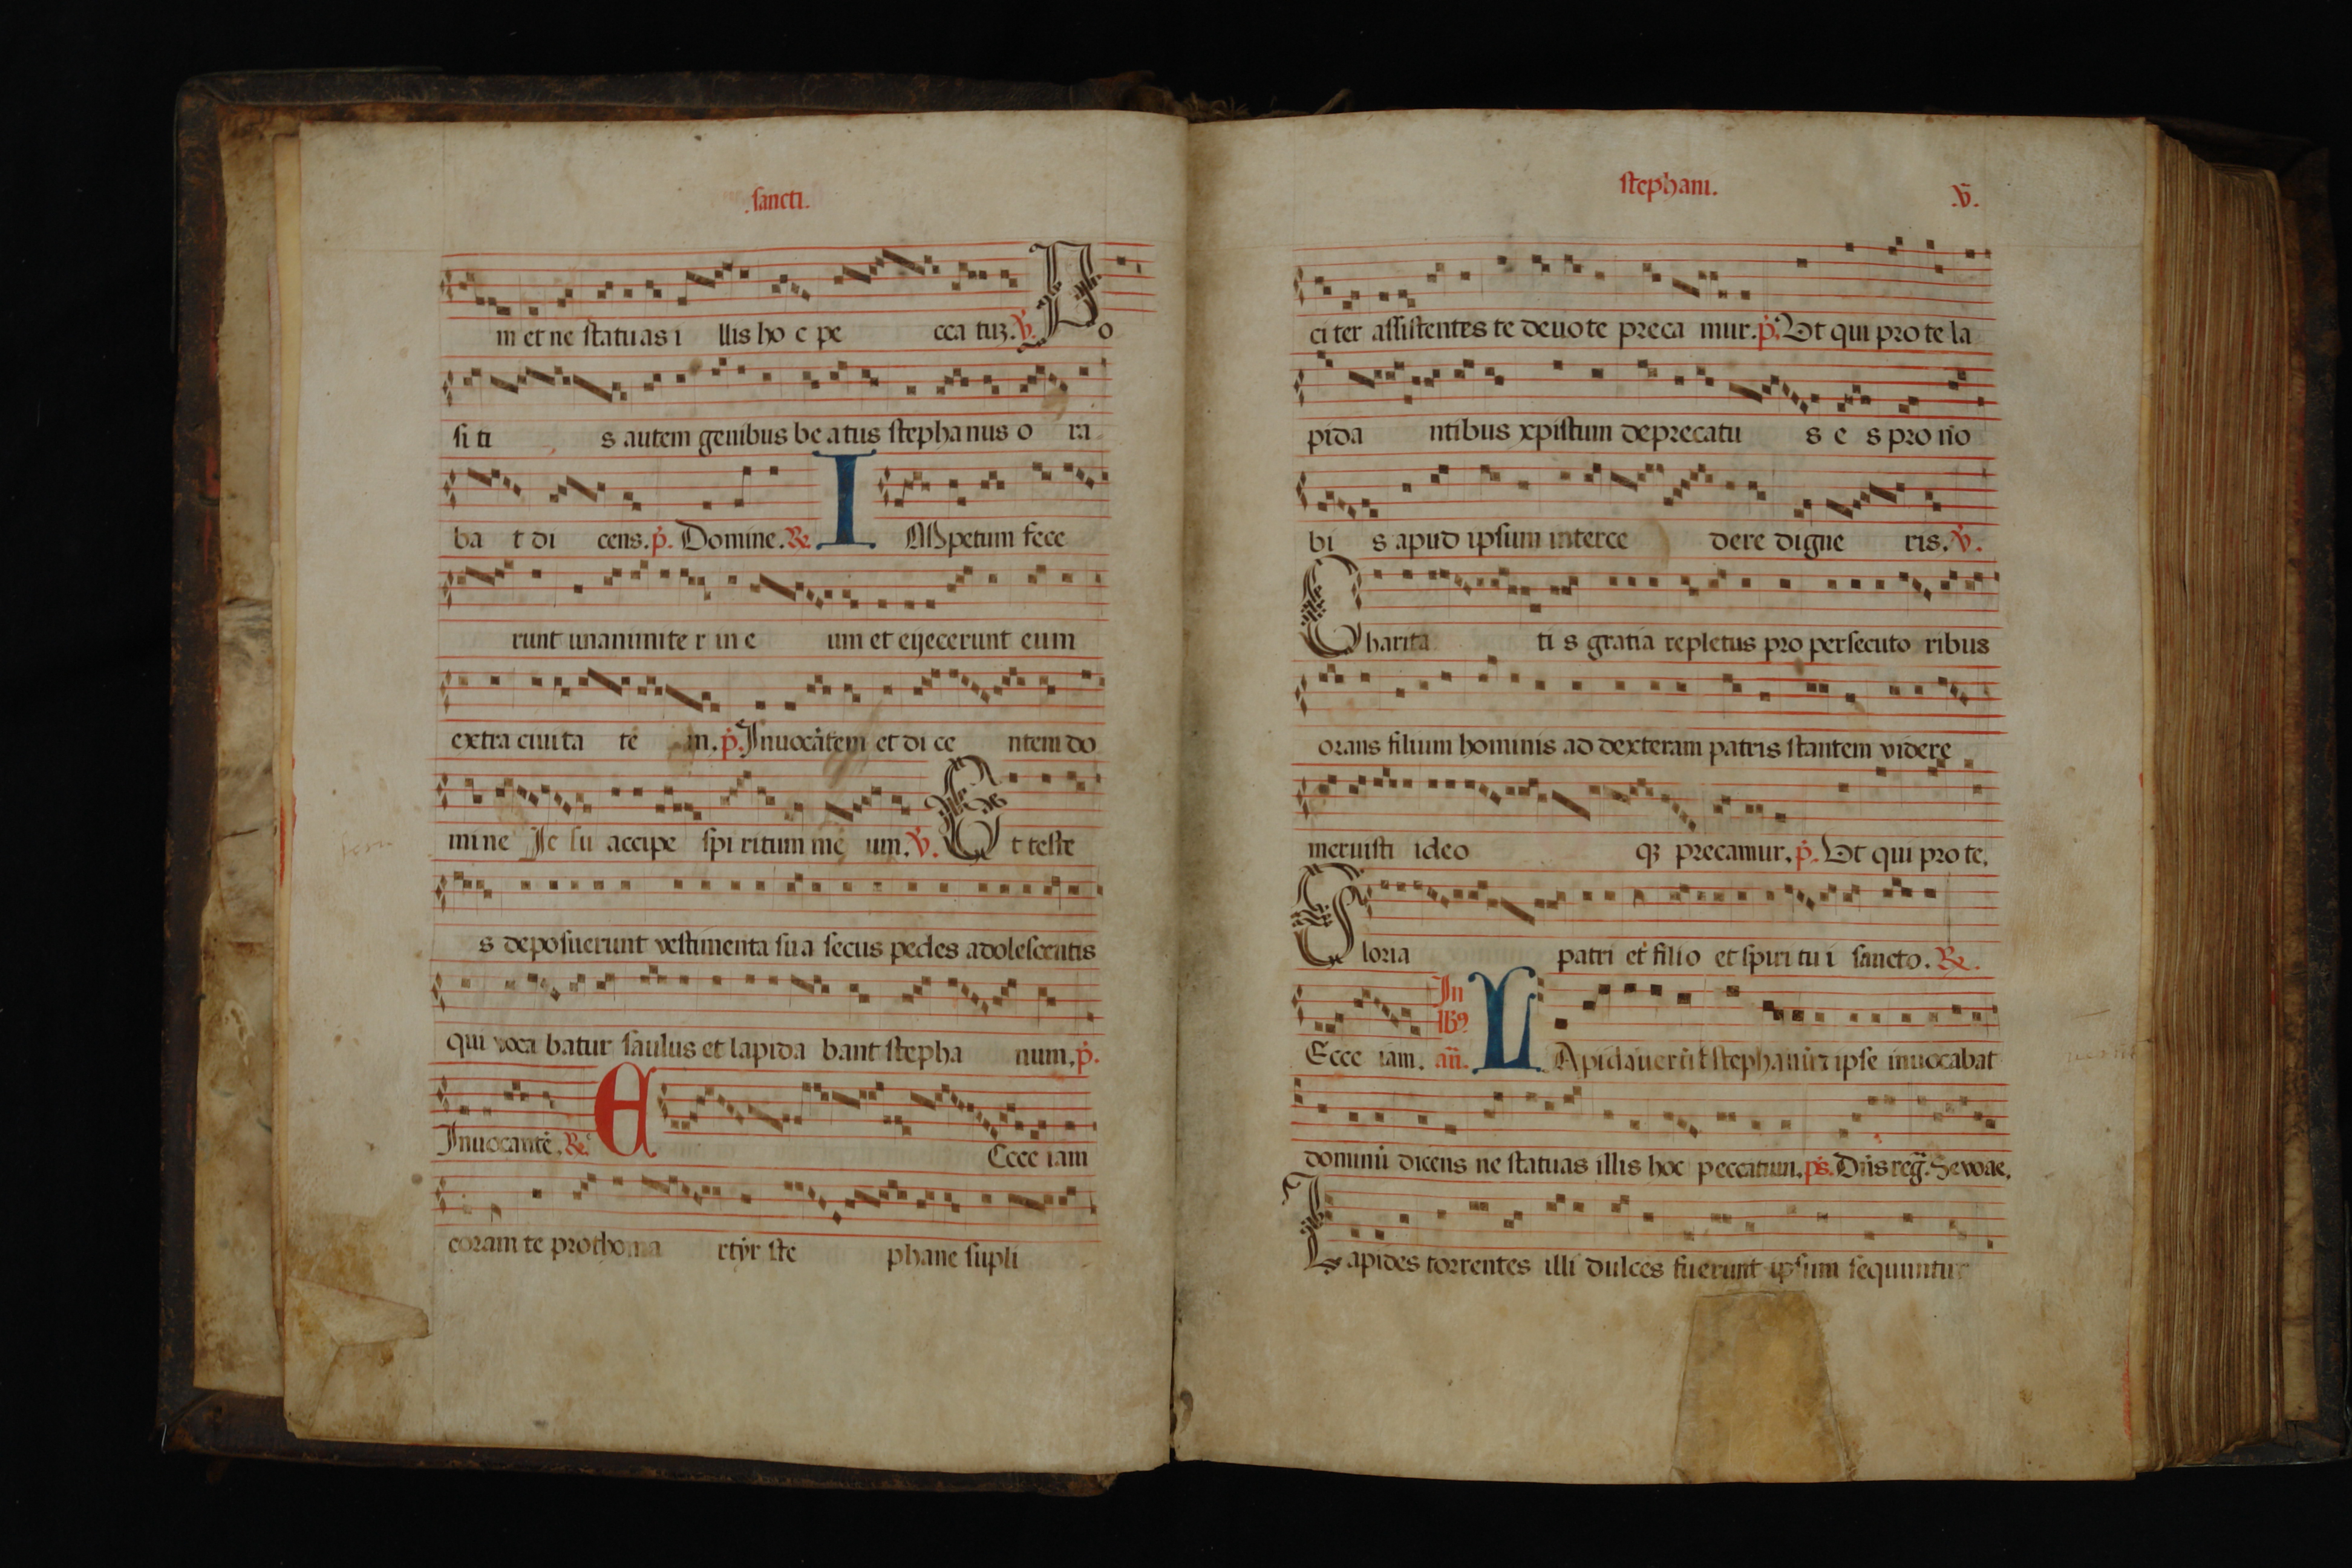 .sancti.
m et ne statuas i llis ho c pe cca tuȝ. ℣. P o
si ti s autem genibus be atus stephanus o ra
ba t di cens. p̄. Domine. ℟. I
Mpetum fece
runt unanimite r in e um et eijecerunt eum
extra ciuita te m. p̄. Inuocātem et di ce ntem do
mine Je su accipe spi ritum me um. ℣. E t teste
s deposuerunt vestimenta sua secus pedes adolescentis
qui voca batur saulus et lapida bant stepha num. p̄.
Inuocantē. ℟. E Ecce iam
coram te prothoma rtẏr ste phane supli
stephani. .V̄.
citer assistentes te deuote preca mur. p̄. Ut qui pro te la
pida ntibus xpistum deprecatu s e s pro no
bi s apud ipsum interce dere digne ris. ℣.
C harita ti s gratia repletus pro persecuto ribus
orans filium hominis ad dexteram patris stantem videre
meruisti ideo qȝ precamur. p̄. Ut qui pro te.
G loria patri et filio et spiri tu i sancto. ℟.
Ecce iam. In lbꝰ añ. L Apidauerūt stephanū ⁊ ipse inuocabat
dominū dicens ne statuas illis hoc peccatum. ps. Dn̄s reg̃. Seuouae.
L apides torrentes illi dulces fuerunt ipsum sequuntur